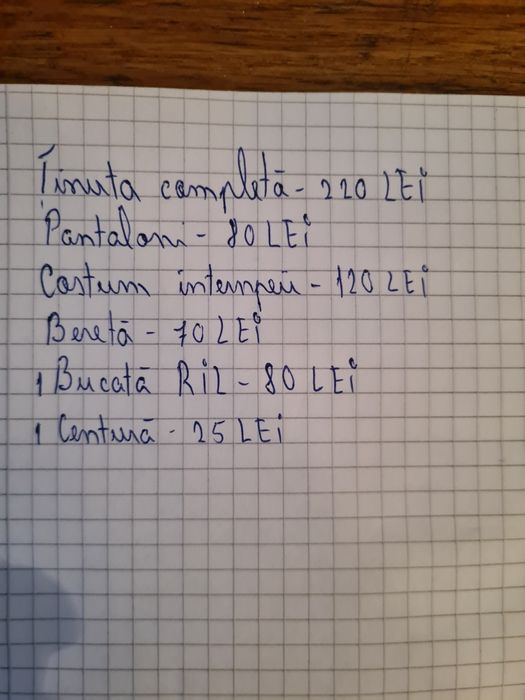 Ținuta completă - 220 LEi
Pantaloni - 80 LEi
Costum intemperii - 120 LEi
Beretă - 70 LEi
1 Bucată RiL - 80 LEi
1 Centură - 25 LEi